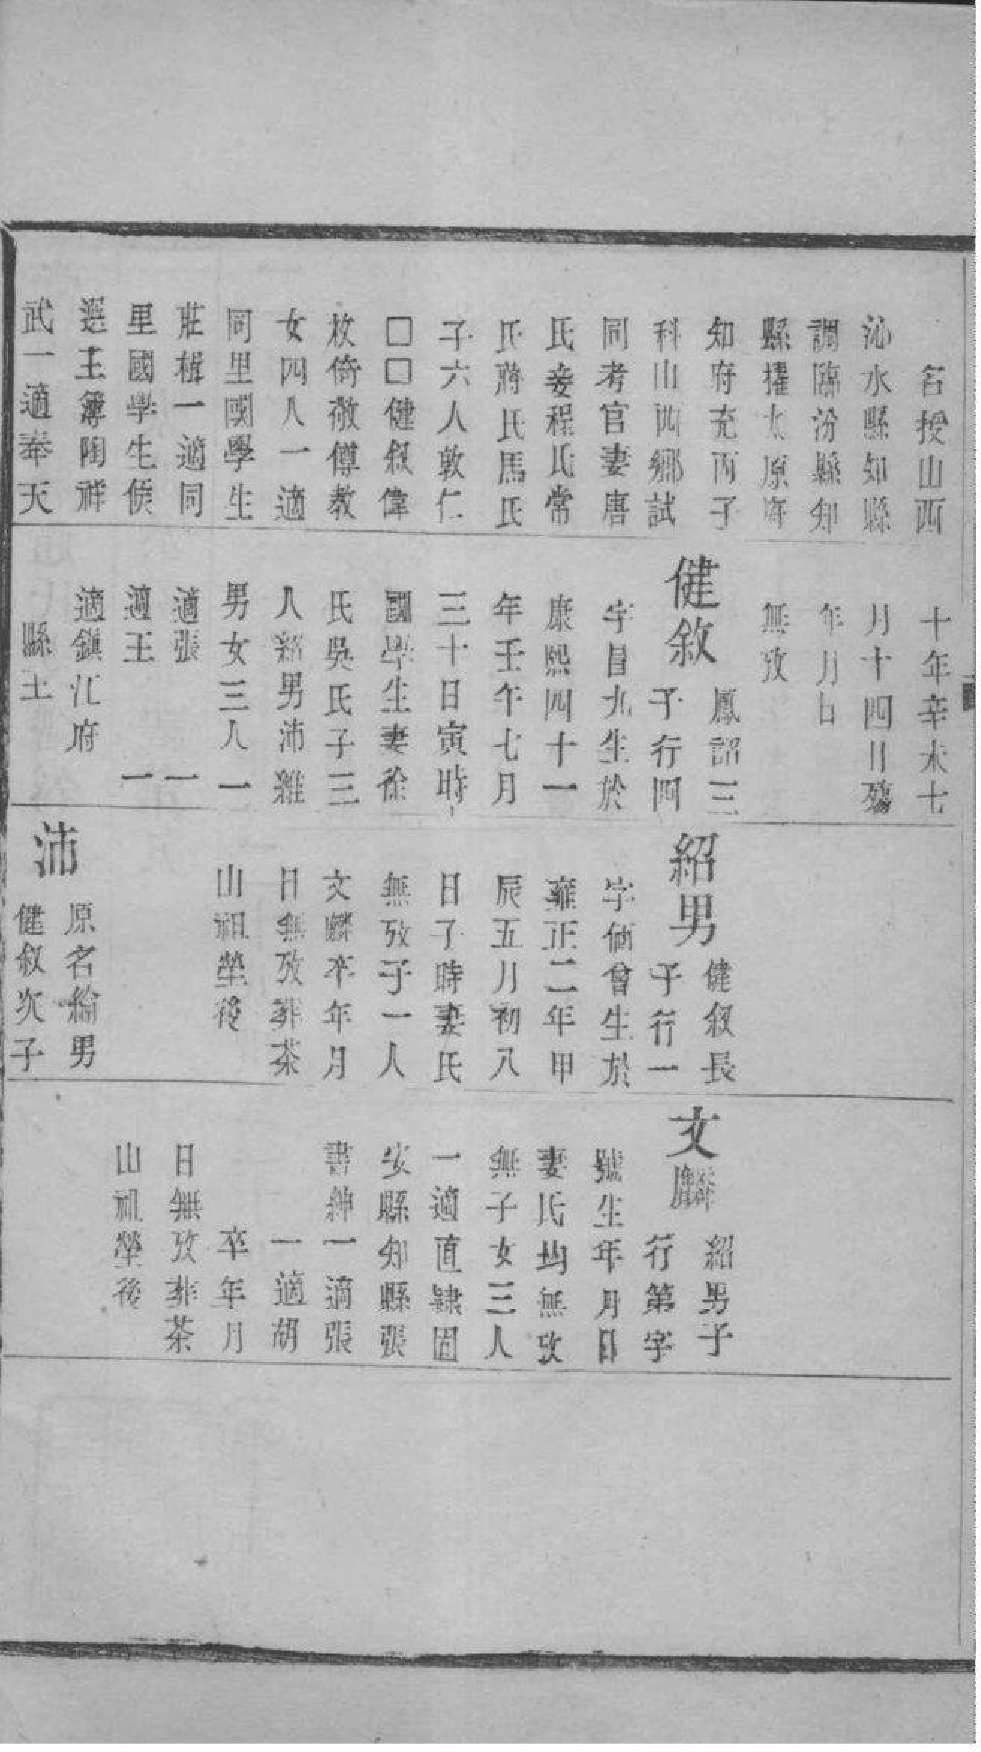 名授山西
沁水縣知縣
調臨汾縣知
縣擢太原府
知府充丙子
科山西鄉試
同考官妻唐
氏妾程氏常
氏蔣氏馬氏
子六人敦仁
□□健叙偉
枚倚徹傅教
女四人一適
同里國學生
莊楫一適同
里國學生侯
選主簿陶祥
武一適奉天
十年辛未七
月十四日殤
年月日
無攷
健敘
鳳詔三
子行四
字昌九生於
康熙四十一
年壬午七月
三十日寅時
國學生妻徐
氏吳氏子三
人紹男沛雒
男女三人一
適張 一
適王 一
適鎮江府
縣王
紹男
健叙長
子行一
字侑曾生於
雍正二年甲
辰五月初八
日子時妻氏
無攷子一人
文麟卒年月
日無攷葬茶
山祖塋後
沛
原名綸男
健叙次子
文麟
紹男子
行第字
號生年月日
妻氏均無攷
無子女三人
一適直隸固
安縣知縣張
書紳一適張
一適胡
卒年月
日無攷葬茶
山祖塋後